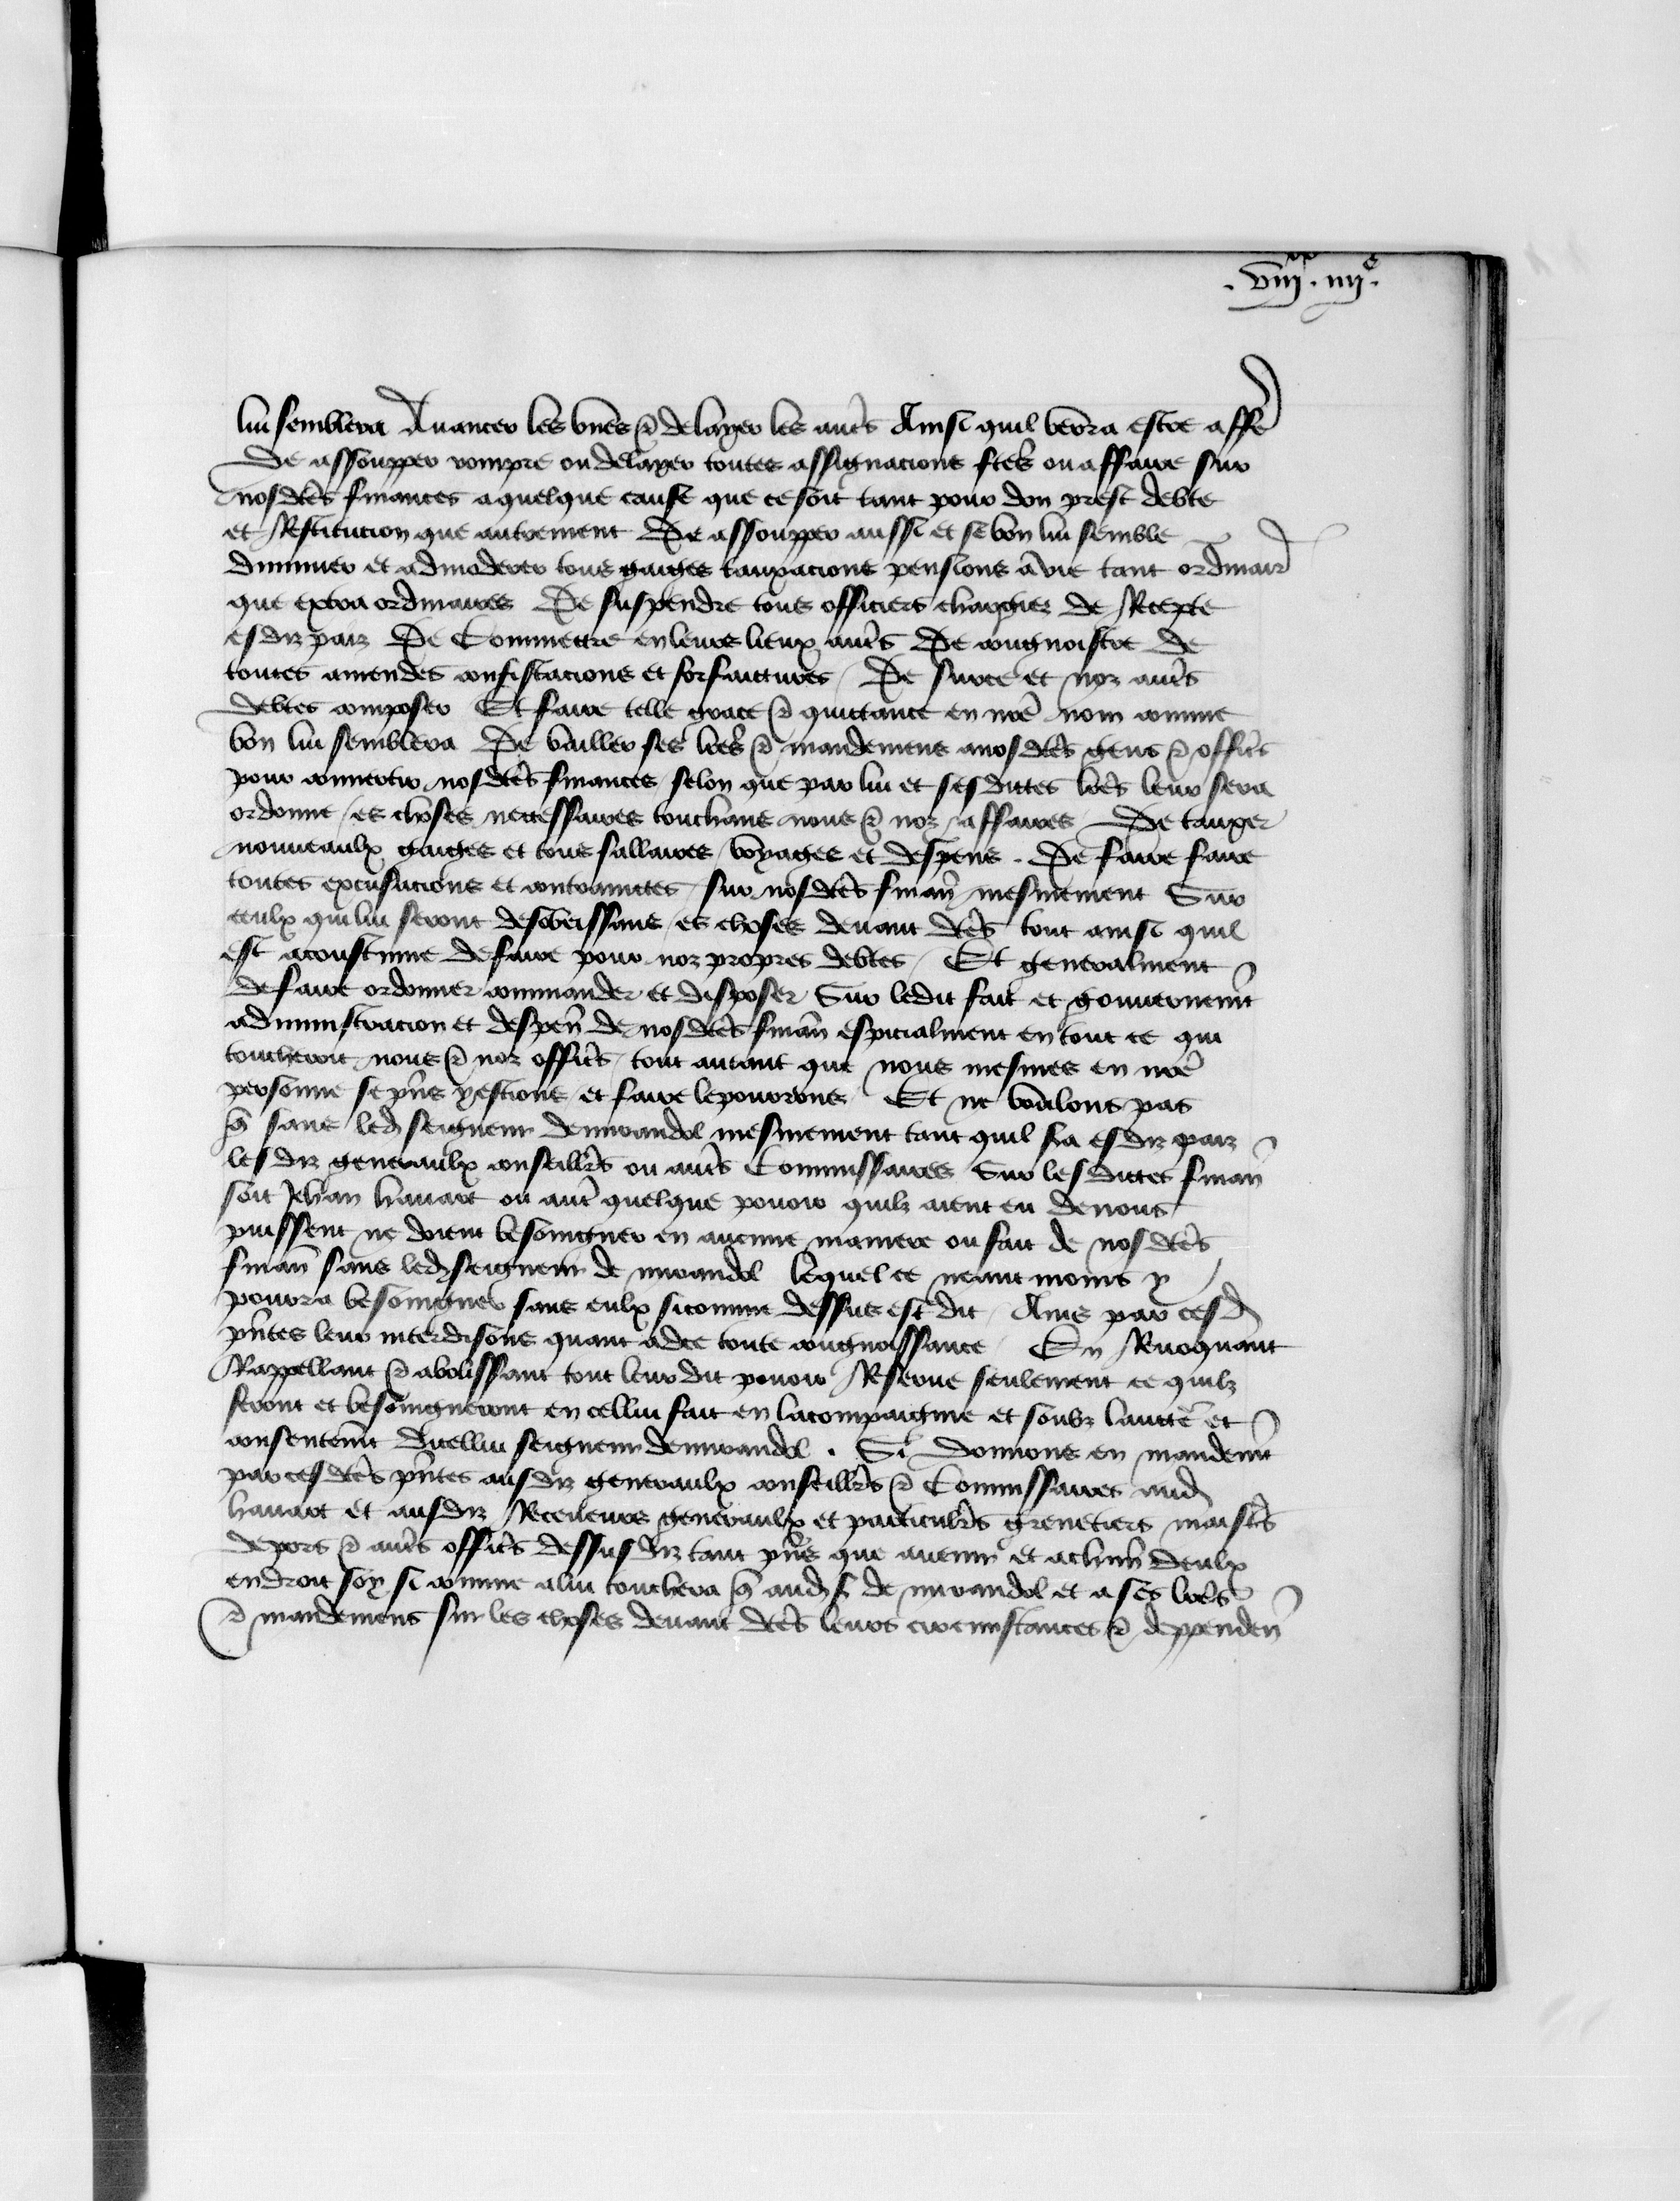 .viii.xx iiii.e
lui semblera Auancer les vnes & delayer les autres Ainsi quil verra estre affe
De assoupper rompre ou delayer toutes assignacions ftes ou affaire sur
nosdtes finances a quelque cause que ce soit tant pour don prest debte
et Restitucion que autrement De assoupper aussi et se bon lui semble
diminuer et admoderer tous gaiges tauxacions pensions a vie tant ordinair
que extra ordinaires De suspendre tous officiers chargiez de Recepte
esdiz paiz De Commettre en leurs lieux autres De congnoistre de
toutes amendes confiscacions et forfaictures / De surce et noz autres
debtes composer Et faire telle grace & quittance en nre nom comme
bon lui semblera De bailler ses lres & mandemens a nosdtes gens & offices
pour conuertir nosdtes finances / selon que par lui et sesdittes lres leur sera
ordonne / es choses necessaires touchans nous & noz affaires De tauxer
nouueaulx gaiges et tous sallaires / voyages et despens . De faire faire
toutes execusucions et contraintes / sur nosdtes finan mesmement Sur
ceulx qui lui seront desobeissans / es choses deuant dtes tout ainsi quil
est acoustume de faire pour noz propres debtes / Et generalment
de faire ordonner commander et disposer Sur ledit fait et gouuernemt
administracion et despen de nosdtes finan espicialment en tout ce qui
toucheroit nous & noz offices / tout autant que nous mesmes en nre
personne se pns y estions / et faire le pourrons Et ne voulons pas
q sans led seigneur de miraudol mesmement tant quil sra esdiz paiz
lesdiz generaulx conseillers ou autres Commissaires Sur lesdittes finan
soit Jehan hauart ou autre quelque pouoir quilz aient eu de nous
puissent ne doient besoingner en aucune maniere ou fait de nosdtes
finan sans led seigneur de miraudol lequel ce neantmoins y
pourra besoingner sans eulx sicomme dessus est dit / Ains par cesd
pntes leur interdisons quant a dce toute congnoissance / En Reuoquant
Rappellant & abolissant tout leurdit pouoir Reserue seulement ce quilz
feront et besoingneront en cellui fait en lacompaignie et soubz lauctte et
consentemt dicellui seigneur de miraudol . Si Donnons en mandemt
par cesdtes pntes ausdiz generaulx conseillers & Commissaires aud
hauart et ausdiz Receueurs generaulx et particulers grenetiers maistres
de pors & autres offices dessusdiz tant pns que auenir et achun deulx
endroit soy si comme a lui touchera q aud s de miraudol et a ses lres
& mandemens sur les choses deuant dtes leurs circunstances & deppenden